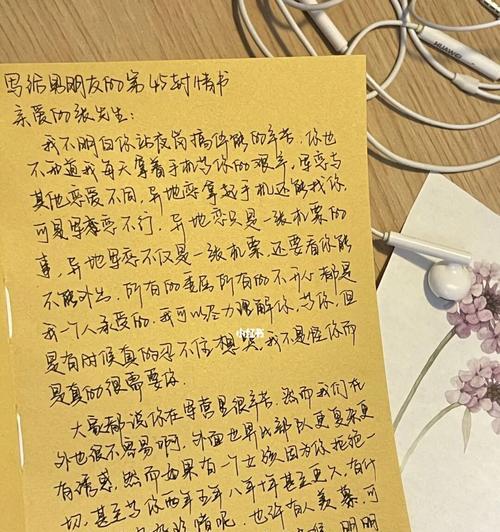 写给男朋友的第45封情书
亲爱的张先生：
我不明白你站夜岗搞体能的辛苦，你也
不知道我每天拿着手机等你的艰辛，军恋与
其他恋爱不同，异地恋拿起手机还能找你，
可是军恋不行，异地恋只是一张机票的
事，异地军恋不仅是一张机票，还要看你能
不能外出，所有的委屈所有的不开心都是
我一个人承受的，我可以尽力理解你，等你，但
是有时候真的忍不住想哭，我不是怪你而
是真的很需要你.
大家都说你在军营里很辛苦，然而我们在
外也很不容易啊，外面也早比部队更复杂更
有诱惑，然而如果有一个女孩因为你拒绝一
切，甚至等你两年五年八年十年甚至更久，有什
情呢，也许有人羡慕，可
明明
HUAWEI
小红书